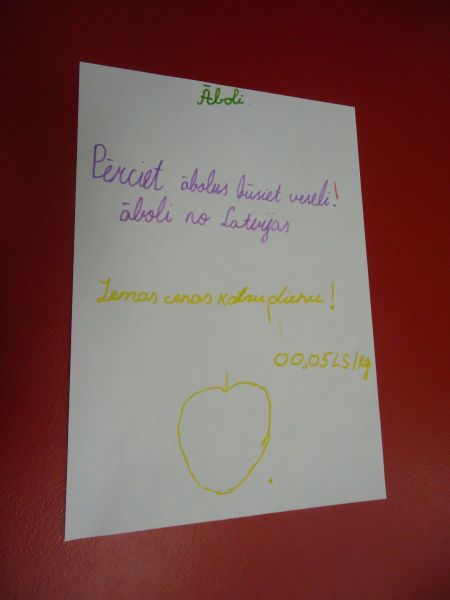 Āboli.
Pērciet ābolus būsiet veseli!
āboli no Latvijas
Zemas cenas katru dienu!
00,05LS/kg